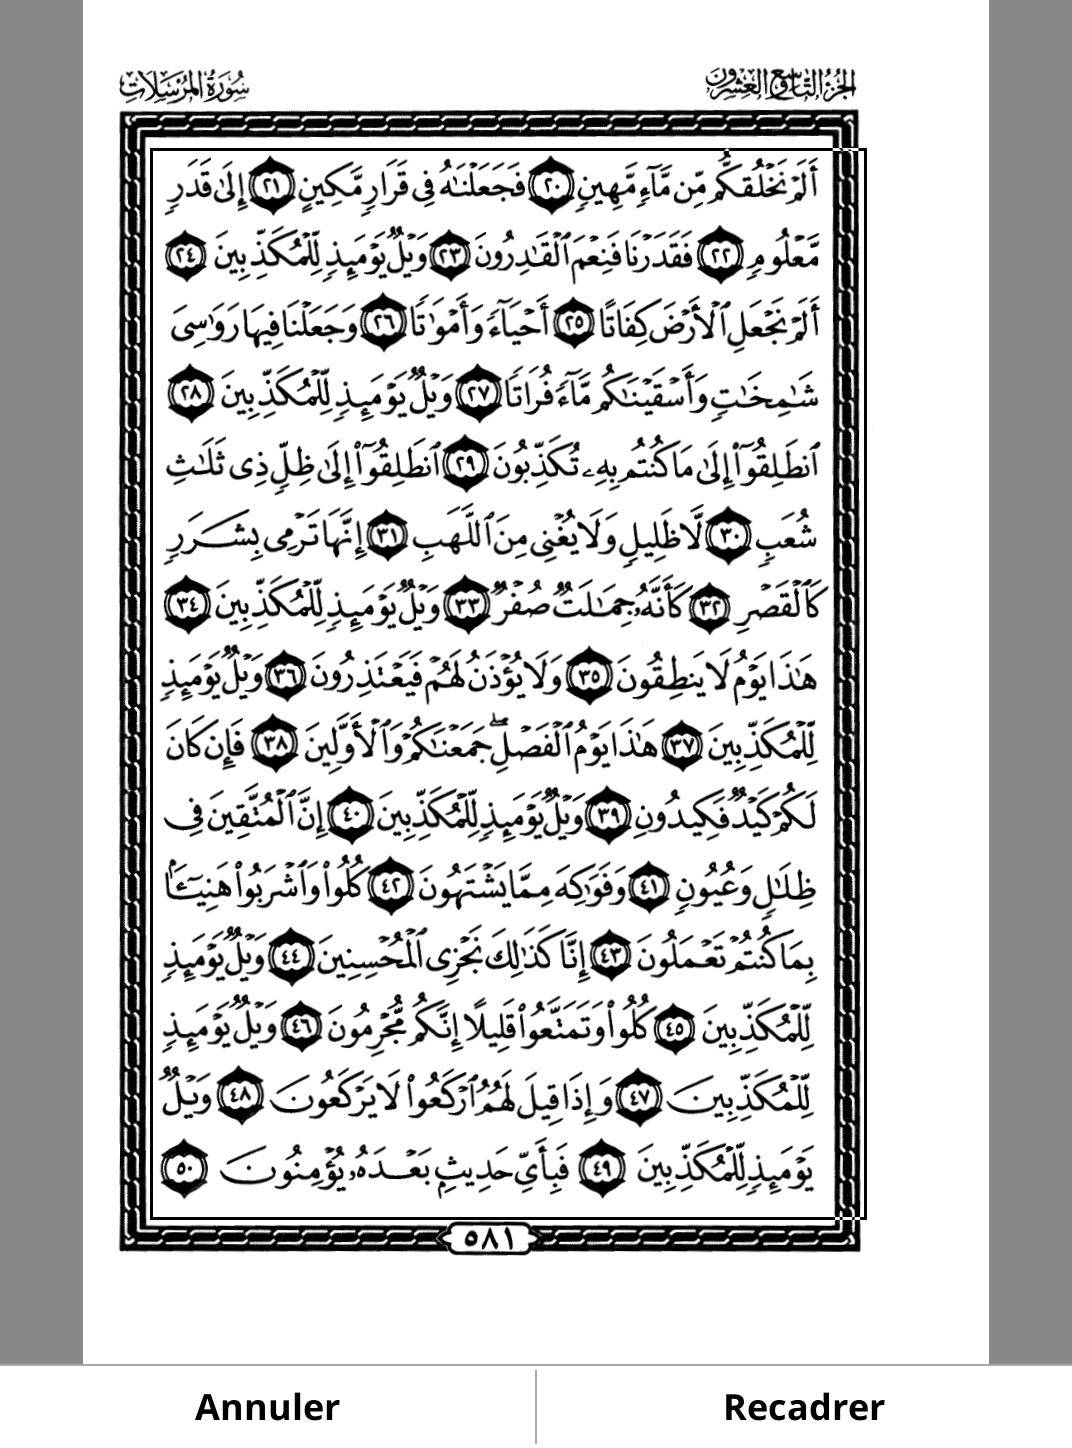 الجزء التاسع والعشرون
سورة المرسلات
أَلَمْ نَخْلُقكُّم مِّن مَّآءٍ مَّهِينٍ ٢٠ فَجَعَلْنَٰهُ فِى قَرَارٍ مَّكِينٍ ٢١ إِلَىٰ قَدَرٍ
مَّعْلُومٍ ٢٢ فَقَدَرْنَا فَنِعْمَ ٱلْقَٰدِرُونَ ٢٣ وَيْلٌ يَوْمَئِذٍ لِّلْمُكَذِّبِينَ ٢٤
أَلَمْ نَجْعَلِ ٱلْأَرْضَ كِفَاتًا ٢٥ أَحْيَآءً وَأَمْوَٰتًا ٢٦ وَجَعَلْنَا فِيهَا رَوَٰسِىَ
شَٰمِخَٰتٍ وَأَسْقَيْنَٰكُم مَّآءً فُرَاتًا ٢٧ وَيْلٌ يَوْمَئِذٍ لِّلْمُكَذِّبِينَ ٢٨
ٱنطَلِقُوٓا۟ إِلَىٰ مَا كُنتُم بِهِۦ تُكَذِّبُونَ ٢٩ ٱنطَلِقُوٓا۟ إِلَىٰ ظِلٍّ ذِى ثَلَٰثِ
شُعَبٍ ٣٠ لَّا ظَلِيلٍ وَلَا يُغْنِى مِنَ ٱللَّهَبِ ٣١ إِنَّهَا تَرْمِى بِشَرَرٍ
كَٱلْقَصْرِ ٣٢ كَأَنَّهُۥ جِمَٰلَتٌ صُفْرٌ ٣٣ وَيْلٌ يَوْمَئِذٍ لِّلْمُكَذِّبِينَ ٣٤
هَٰذَا يَوْمُ لَا يَنطِقُونَ ٣٥ وَلَا يُؤْذَنُ لَهُمْ فَيَعْتَذِرُونَ ٣٦ وَيْلٌ يَوْمَئِذٍ
لِّلْمُكَذِّبِينَ ٣٧ هَٰذَا يَوْمُ ٱلْفَصْلِ ۖ جَمَعْنَٰكُمْ وَٱلْأَوَّلِينَ ٣٨ فَإِن كَانَ
لَكُمْ كَيْدٌ فَكِيدُونِ ٣٩ وَيْلٌ يَوْمَئِذٍ لِّلْمُكَذِّبِينَ ٤٠ إِنَّ ٱلْمُتَّقِينَ فِى
ظِلَٰلٍ وَعُيُونٍ ٤١ وَفَوَٰكِهَ مِمَّا يَشْتَهُونَ ٤٢ كُلُوا۟ وَٱشْرَبُوا۟ هَنِيٓـًٔۢا
بِمَا كُنتُمْ تَعْمَلُونَ ٤٣ إِنَّا كَذَٰلِكَ نَجْزِى ٱلْمُحْسِنِينَ ٤٤ وَيْلٌ يَوْمَئِذٍ
لِّلْمُكَذِّبِينَ ٤٥ كُلُوا۟ وَتَمَتَّعُوا۟ قَلِيلًا إِنَّكُم مُّجْرِمُونَ ٤٦ وَيْلٌ يَوْمَئِذٍ
لِّلْمُكَذِّبِينَ ٤٧ وَإِذَا قِيلَ لَهُمُ ٱرْكَعُوا۟ لَا يَرْكَعُونَ ٤٨ وَيْلٌ
يَوْمَئِذٍ لِّلْمُكَذِّبِينَ ٤٩ فَبِأَىِّ حَدِيثٍۭ بَعْدَهُۥ يُؤْمِنُونَ ٥٠
٥٨١
Annuler
Recadrer